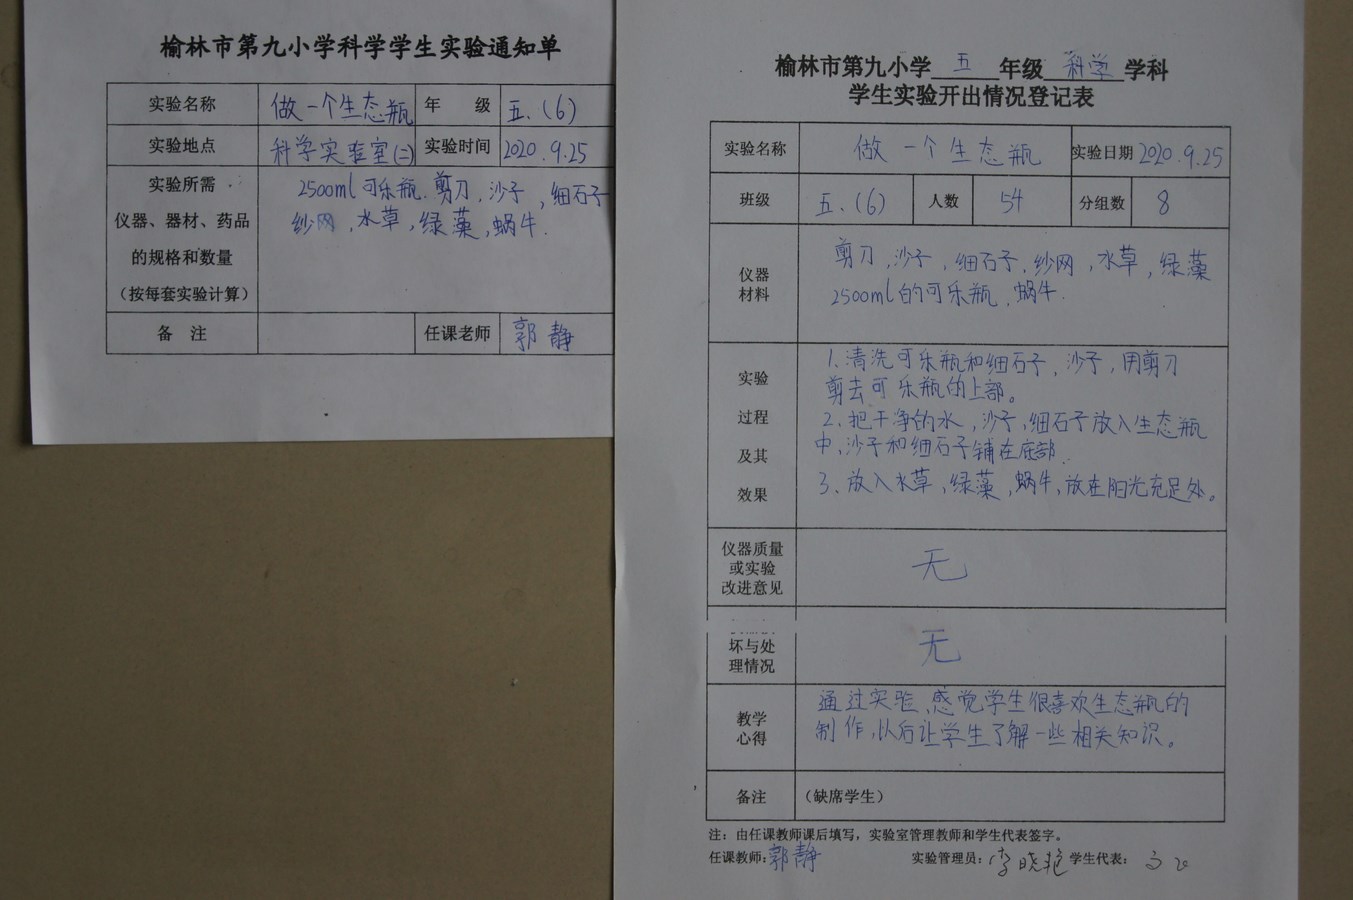 榆林市第九小学科学学生实验通知单
实验名称 做一个生态瓶 年 级 五.(6)
实验地点 科学实验室(二) 实验时间 2020.9.25
实验所需
仪器、器材、药品
的规格和数量
(按每套实验计算)
2500ml可乐瓶.剪刀,沙子,细石子
纱网,水草,绿藻,蜗牛.
备 注 任课老师 郭静
榆林市第九小学 五 年级 科学 学科
学生实验开出情况登记表
实验名称 做一个生态瓶 实验日期 2020.9.25
班级 五.(6) 人数 54 分组数 8
仪器
材料
剪刀,沙子,细石子,纱网,水草,绿藻
2500ml的可乐瓶,蜗牛.
实验
过程
及其
效果
1.清洗可乐瓶和细石子,沙子,用剪刀
剪去可乐瓶的上部。
2.把干净的水,沙子,细石子放入生态瓶
中,沙子和细石子铺在底部.
3.放入水草,绿藻,蜗牛,放在阳光充足处。
仪器质量
或实验
改进意见
无
坏与处
理情况
无
教学
心得
通过实验,感觉学生很喜欢生态瓶的
制作,以后让学生了解一些相关知识。
备注 (缺席学生)
注:由任课教师课后填写,实验室管理教师和学生代表签字。
任课教师:郭静 实验管理员:李晓艳 学生代表: